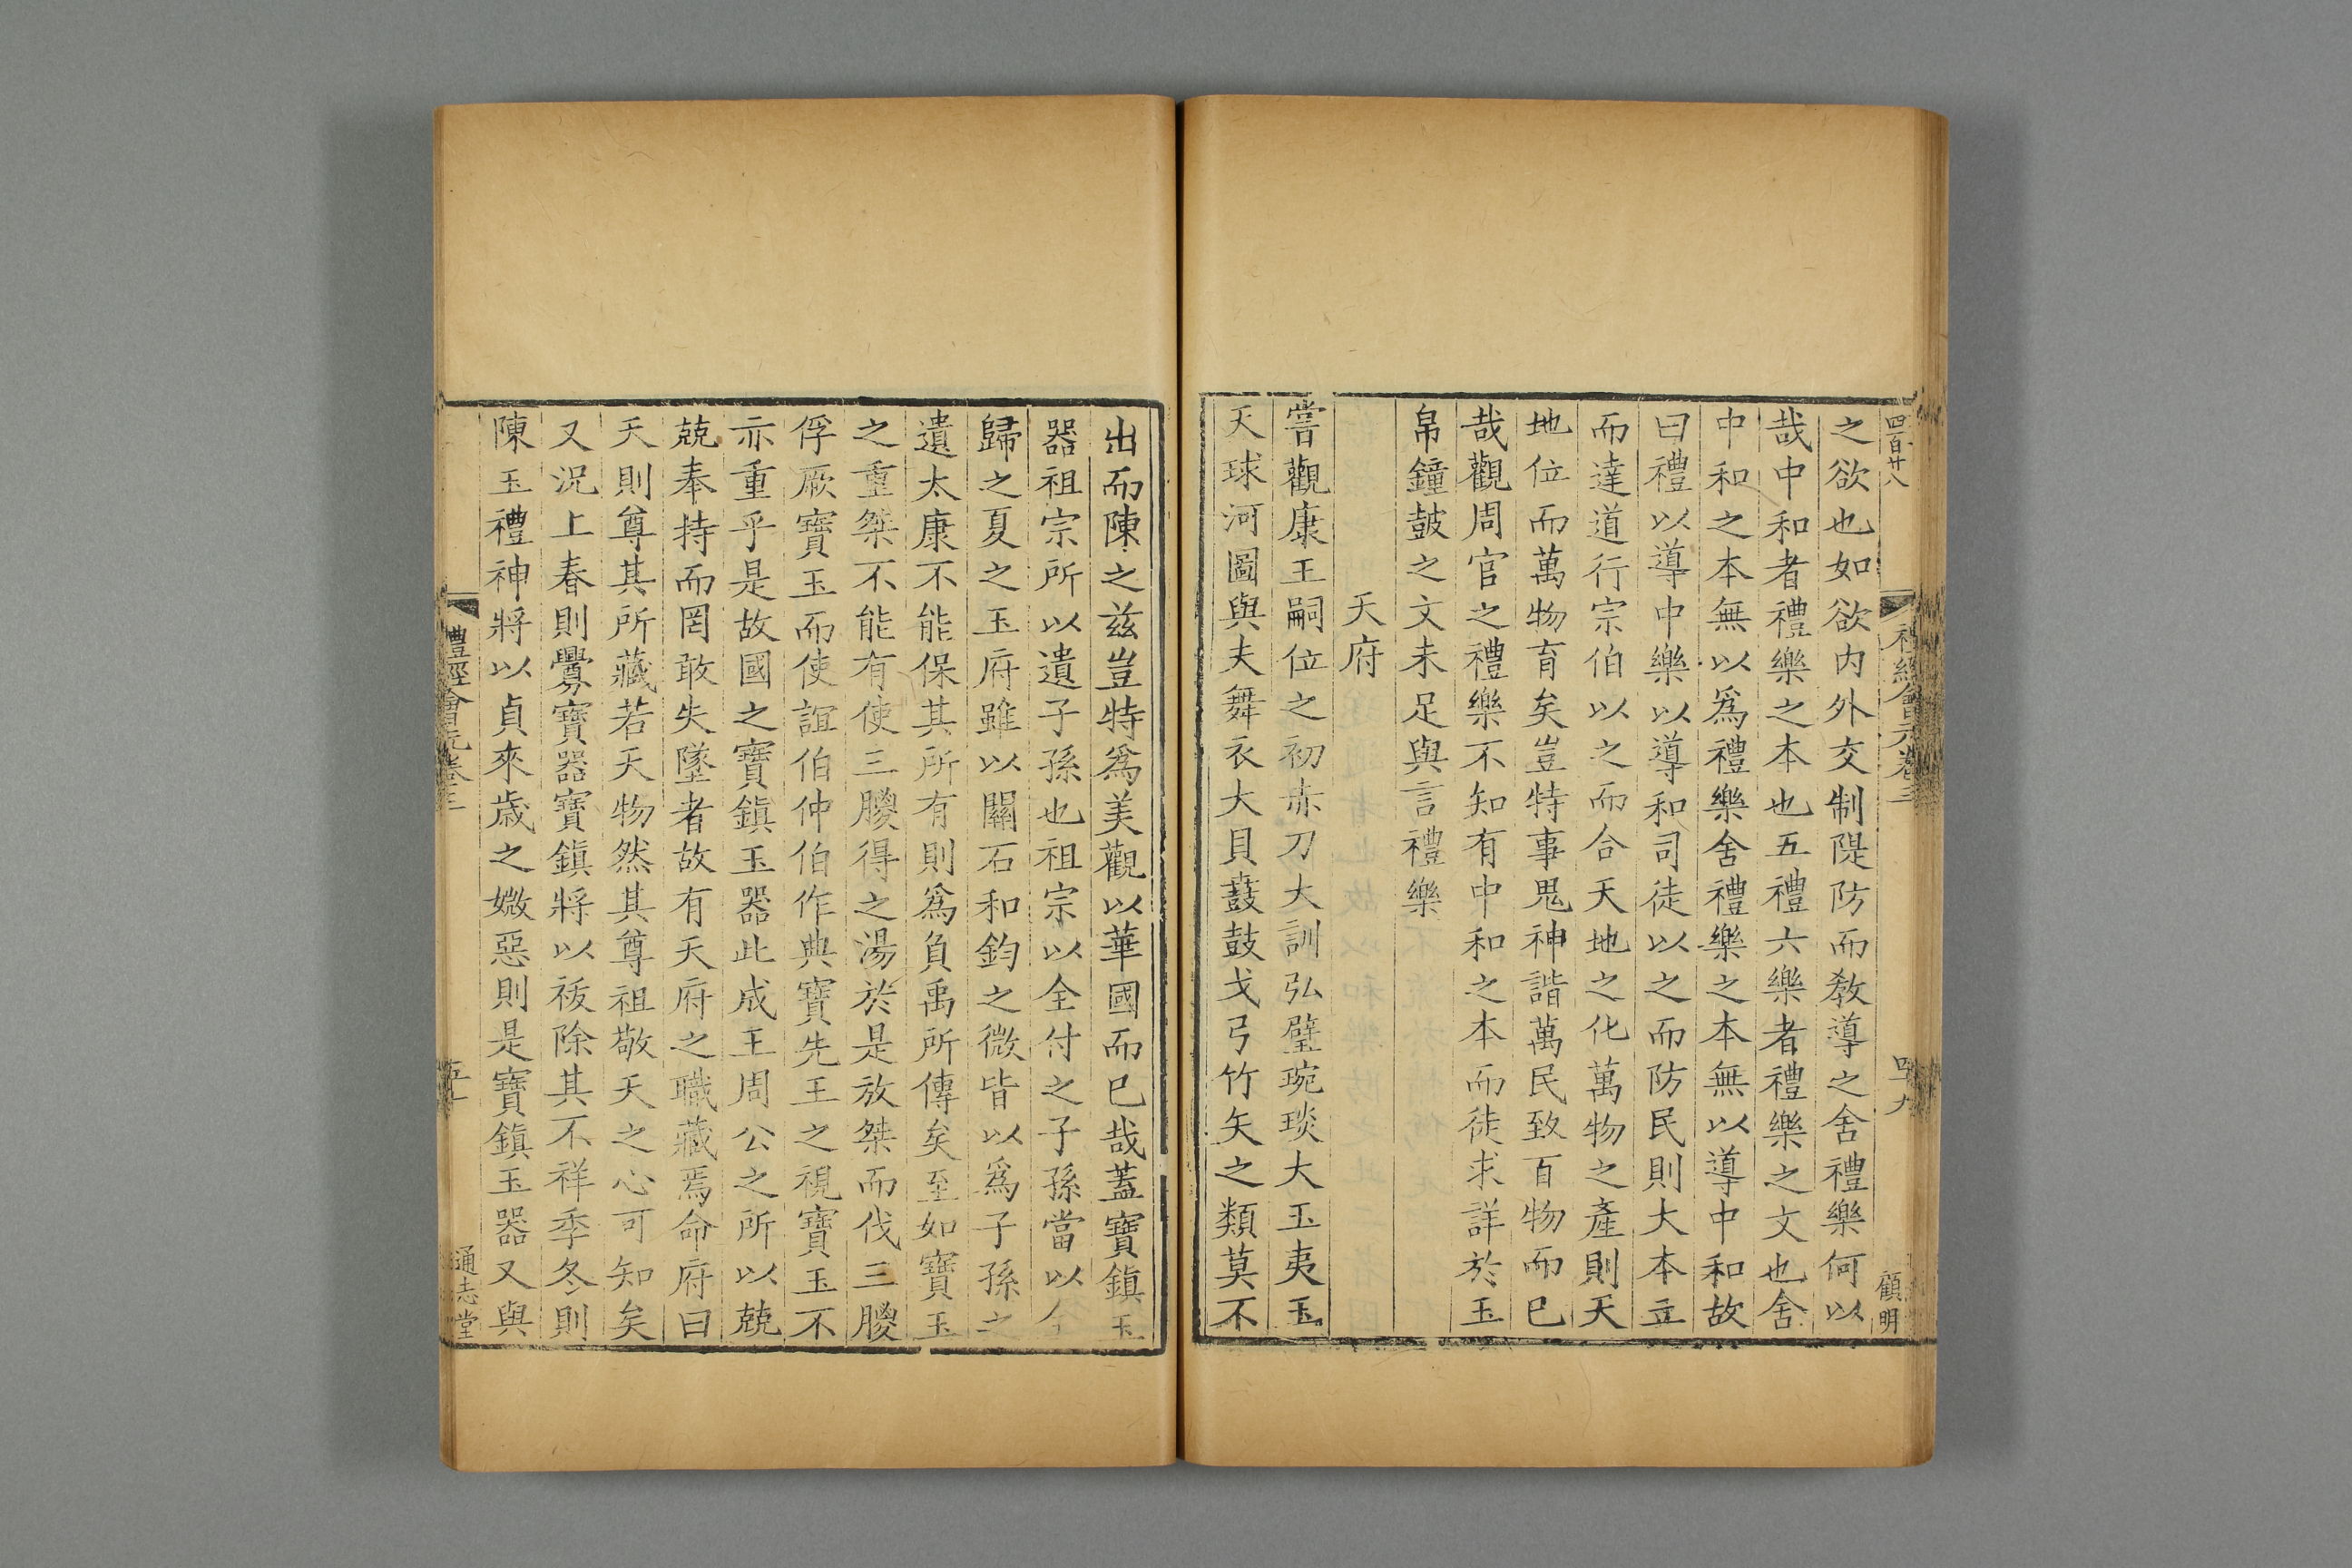 四百廿八
禮經會元卷三
四十九
顧明
之欲也如欲内外交制隄防而教導之舍禮樂何以
哉中和者禮樂之本也五禮六樂者禮樂之文也舍
中和之本無以爲禮樂舍禮樂之本無以導中和故
曰禮以導中樂以導和司徒以之而防民則大本立
而達道行宗伯以之而合天地之化萬物之產則天
地位而萬物育矣豈特事鬼神諧萬民致百物而已
哉觀周官之禮樂不知有中和之本而徒求詳於玉
帛鐘鼓之文未足與言禮樂
天府
嘗觀康王嗣位之初赤刀大訓弘璧琬琰大玉夷玉
天球河圖與夫舞衣大貝鼖鼓戈弓竹矢之類莫不
出而陳之兹豈特爲美觀以華國而已哉蓋寶鎮玉
器祖宗所以遺子孫也祖宗以全付之子孫當以全
歸之夏之玉府雖以關石和鈞之微皆以爲子孫之
遺太康不能保其所有則爲負禹所傳矣至如寶玉
之重桀不能有使三朡得之湯於是放桀而伐三朡
俘厥寶玉而使誼伯仲伯作典寶先王之視寶玉不
亦重乎是故國之寶鎮玉器此成王周公之所以兢
兢奉持而罔敢失墜者故有天府之職藏焉命府曰
天則尊其所藏若天物然其尊祖敬天之心可知矣
又況上春則釁寶器寶鎮將以祓除其不祥季冬則
陳玉禮神將以貞來歲之媺惡則是寶鎮玉器又與
禮經會元卷三
五十
通志堂